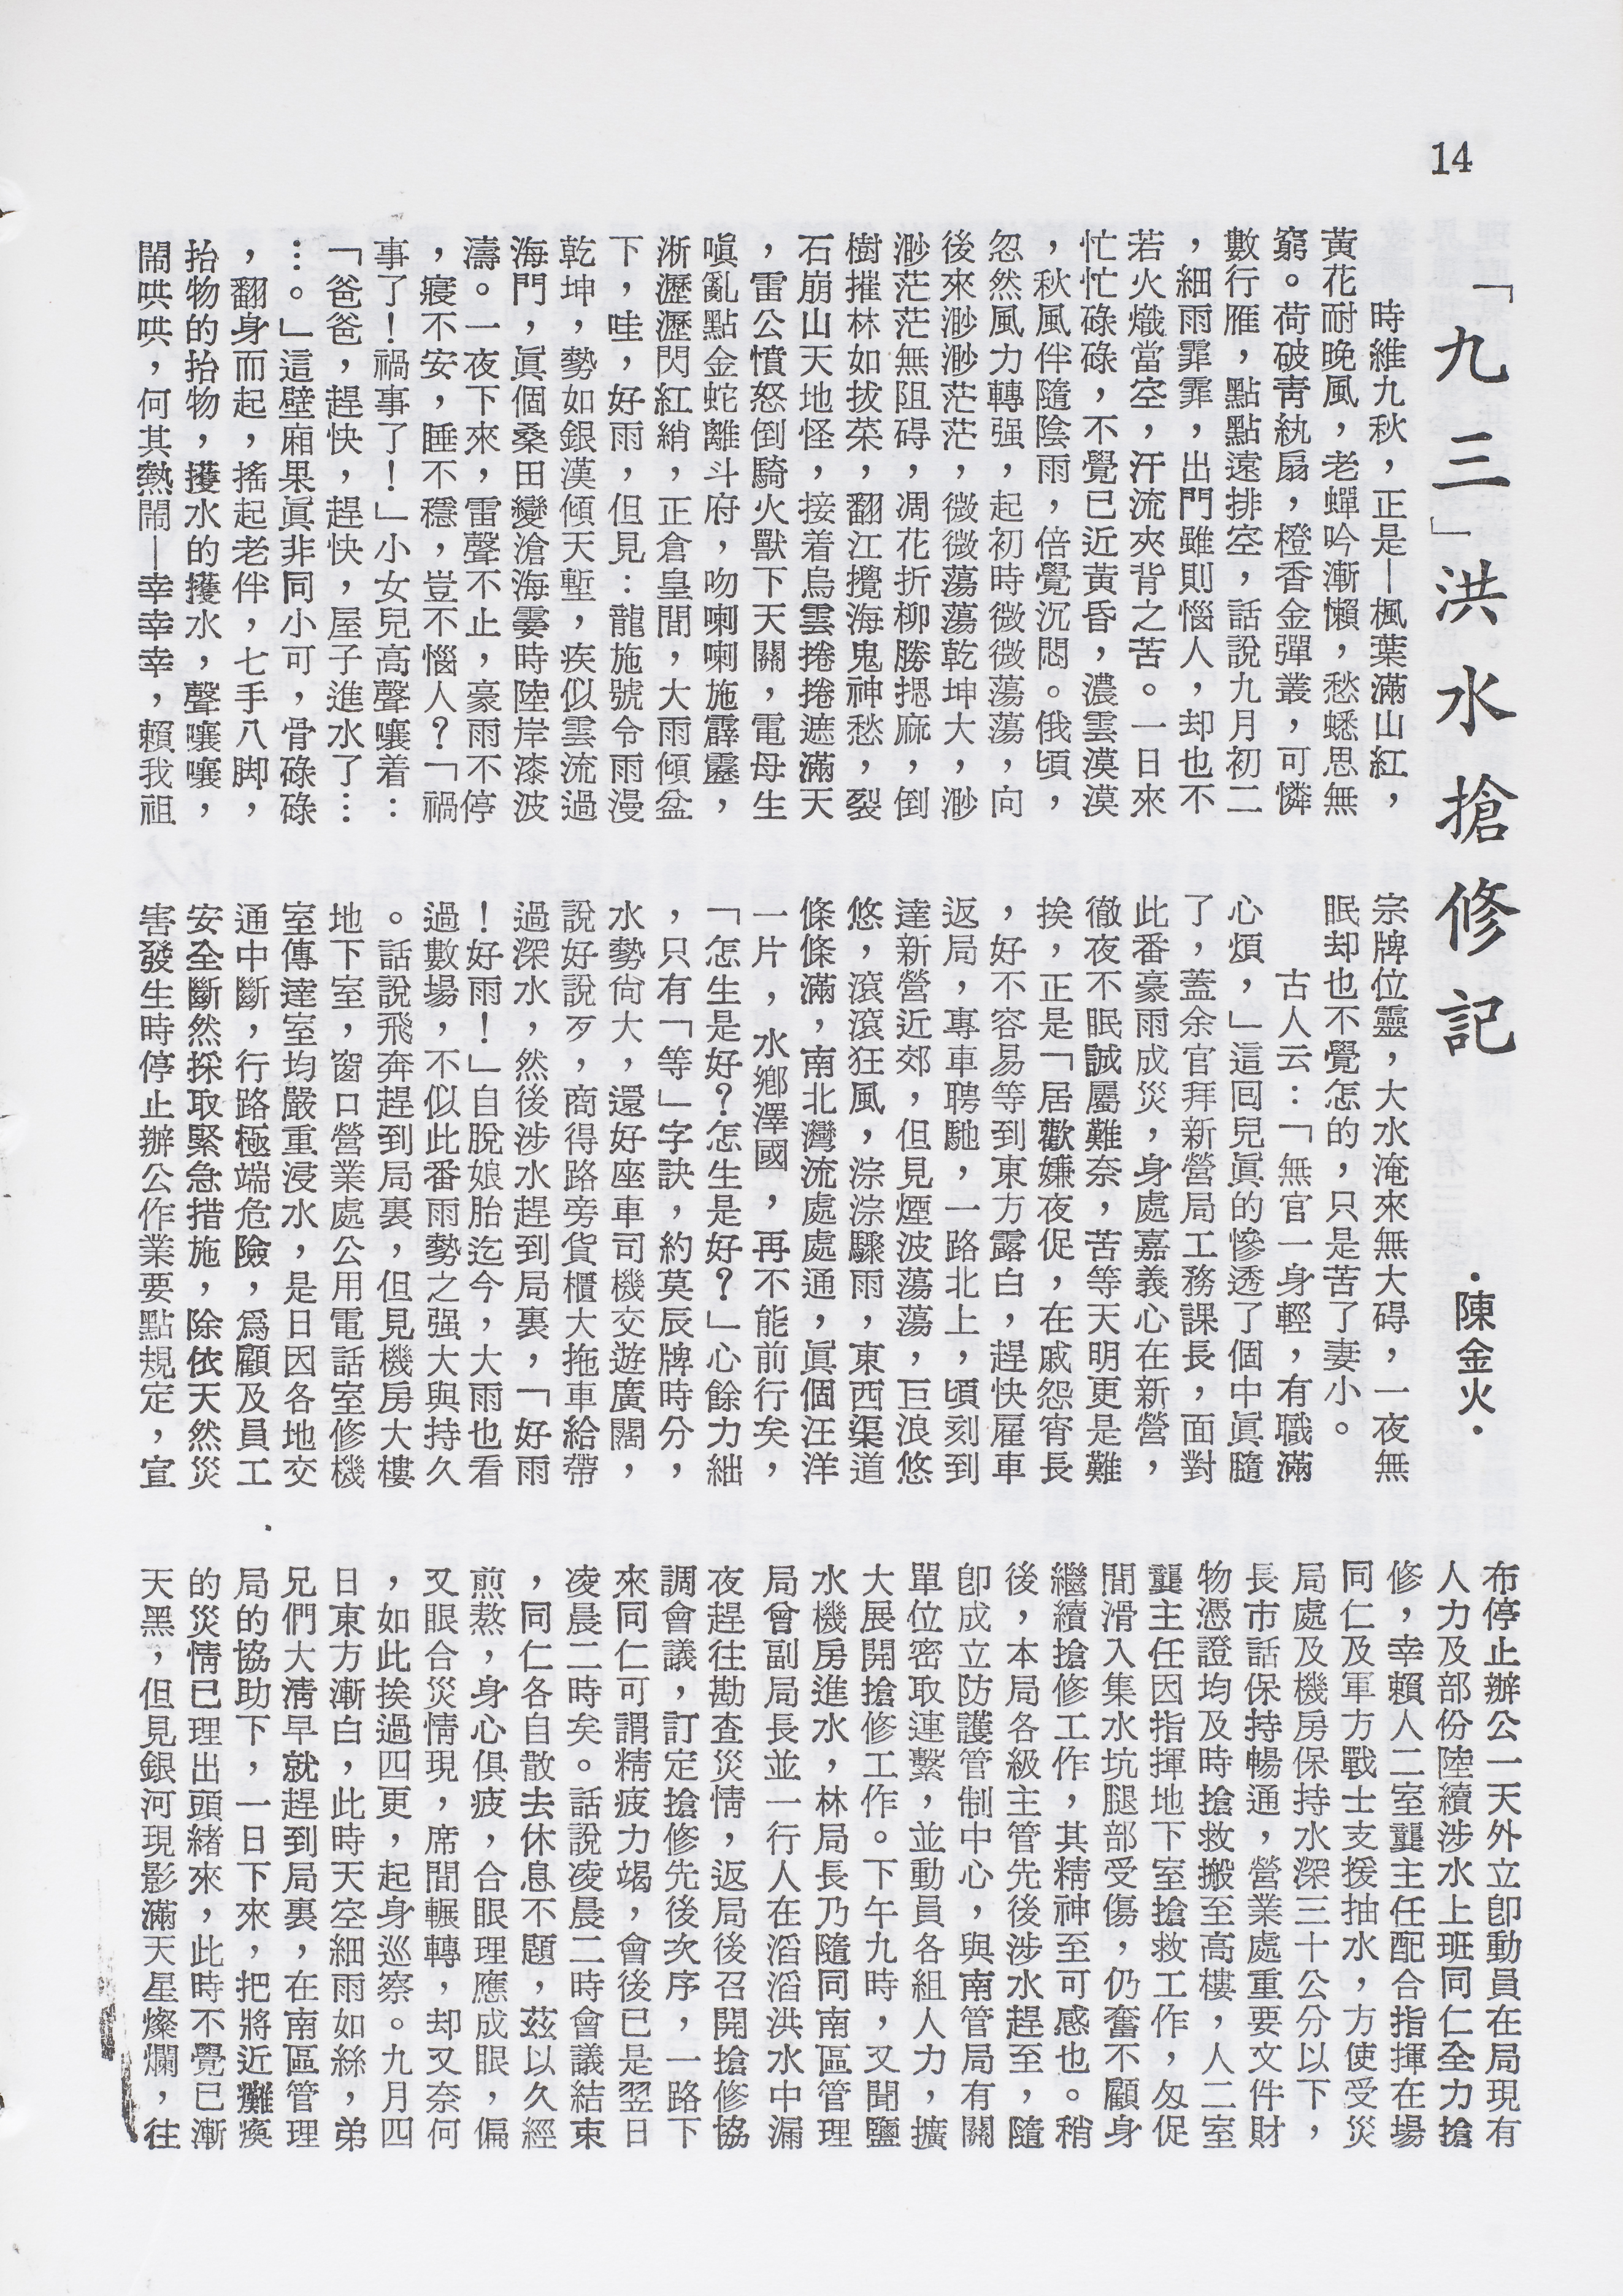 14
「九三」洪水搶修記
·陳金火·
時維九秋，正是—楓葉滿山紅，
黃花耐晚風，老蟬吟漸懶，愁蟋思無
窮。荷破靑紈扇，橙香金彈叢，可憐
數行雁，點點遠排空，話說九月初二
，細雨霏霏，出門雖則惱人，却也不
若火熾當空，汗流夾背之苦。一日來
忙忙碌碌，不覺已近黃昏，濃雲漠漠
，秋風伴隨陰雨，倍覺沉悶。俄頃，
忽然風力轉强，起初時微微蕩蕩，向
後來渺渺茫茫，微微蕩蕩乾坤大，渺
渺茫茫無阻碍，凋花折柳勝摁麻，倒
樹摧林如拔菜，翻江攪海鬼神愁，裂
石崩山天地怪，接着烏雲捲捲遮滿天
，雷公憤怒倒騎火獸下天關，電母生
嗔亂點金蛇離斗府，吻喇喇施霹靂，
淅瀝瀝閃紅綃，正倉皇間，大雨傾盆
下，哇，好雨，但見：龍施號令雨漫
乾坤，勢如銀漢傾天塹，疾似雲流過
海門，眞個桑田變滄海霎時陸岸漆波
濤。一夜下來，雷聲不止，豪雨不停
，寢不安，睡不穩，豈不惱人？「禍
事了！禍事了！」小女兒高聲嚷着：
「爸爸，趕快，趕快，屋子進水了…
…。」這壁廂果眞非同小可，骨碌碌
，翻身而起，搖起老伴，七手八脚，
抬物的抬物，擭水的擭水，聲嚷嚷，
鬧哄哄，何其熱鬧—幸幸幸，賴我祖
宗牌位靈，大水淹來無大碍，一夜無
眠却也不覺怎的，只是苦了妻小。
古人云：「無官一身輕，有職滿
心煩，」這回兒眞的慘透了個中眞隨
了，蓋余官拜新營局工務課長，面對
此番豪雨成災，身處嘉義心在新營，
徹夜不眠誠屬難奈，苦等天明更是難
挨，正是「居歡嫌夜促，在戚怨宵長
，好不容易等到東方露白，趕快雇車
返局，專車聘馳，一路北上，頃刻到
達新營近郊，但見煙波蕩蕩，巨浪悠
悠，滾滾狂風，淙淙驟雨，東西渠道
條條滿，南北灣流處處通，眞個汪洋
一片，水鄉澤國，再不能前行矣，
「怎生是好？怎生是好？」心餘力絀
，只有「等」字訣，約莫辰牌時分，
水勢尙大，還好座車司機交遊廣闊，
說好說歹，商得路旁貨櫃大拖車給帶
過深水，然後涉水趕到局裏，「好雨
！好雨！」自脫娘胎迄今，大雨也看
過數場，不似此番雨勢之强大與持久
。話說飛奔趕到局裏，但見機房大樓
地下室，窗口營業處公用電話室修機
室傳達室均嚴重浸水，是日因各地交
通中斷，行路極端危險，爲顧及員工
安全斷然採取緊急措施，除依天然災
害發生時停止辦公作業要點規定，宣
布停止辦公一天外立卽動員在局現有
人力及部份陸續涉水上班同仁全力搶
修，幸賴人二室龔主任配合指揮在場
同仁及軍方戰士支援抽水，方使受災
局處及機房保持水深三十公分以下，
長市話保持暢通，營業處重要文件財
物憑證均及時搶救搬至高樓，人二室
龔主任因指揮地下室搶救工作，匆促
間滑入集水坑腿部受傷，仍奮不顧身
繼續搶修工作，其精神至可感也。稍
後，本局各級主管先後涉水趕至，隨
卽成立防護管制中心，與南管局有關
單位密取連繫，並動員各組人力，擴
大展開搶修工作。下午九時，又聞鹽
水機房進水，林局長乃隨同南區管理
局曾副局長並一行人在滔滔洪水中漏
夜趕往勘查災情，返局後召開搶修協
調會議，訂定搶修先後次序，一路下
來同仁可謂精疲力竭，會後已是翌日
凌晨二時矣。話說凌晨二時會議結束
，同仁各自散去休息不題，茲以久經
煎熬，身心俱疲，合眼理應成眠，偏
又眼合災情現，席間輾轉，却又奈何
，如此挨過四更，起身巡察。九月四
日東方漸白，此時天空細雨如絲，弟
兄們大淸早就趕到局裏，在南區管理
局的協助下，一日下來，把將近癱瘓
的災情已理出頭緒來，此時不覺已漸
天黑，但見銀河現影滿天星燦爛，往